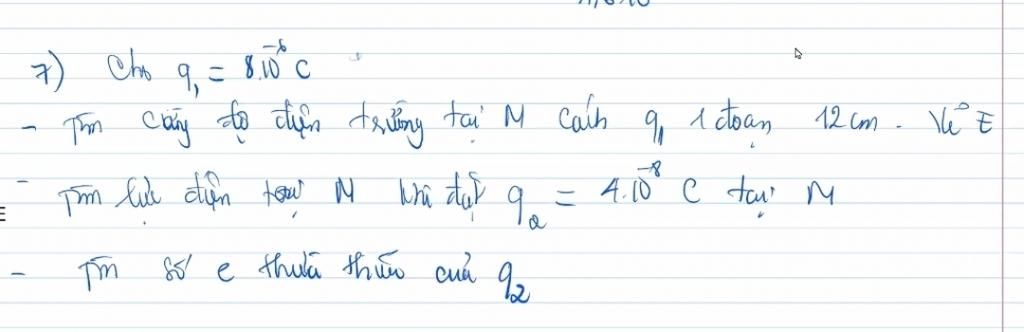 7) Cho q₁ = 8.10⁻⁸ C
- Tìm cường độ điện trường tại M cách q₁ 1 đoạn 12 cm. Vẽ E
- Tìm lực điện tại M khi đặt q₂ = 4.10⁻⁸ C tại M
- Tìm số e thừa thiếu của q₂